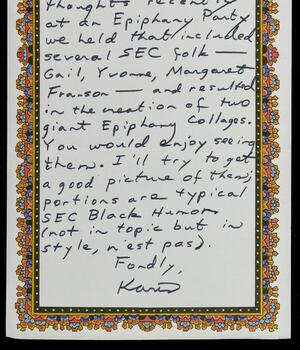 thoughts recently
at an Epiphany Party
we held that included
several SEC folk —
Gail, Yvonne, Margaret
Franson — and resulted
in the creation of two
giant Epiphany Collages.
You would enjoy seeing
them. I'll try to get
a good picture of them;
portions are typical
SEC Black Humor
(not in topic but in
style, n'est pas).
Fondly,
Karen